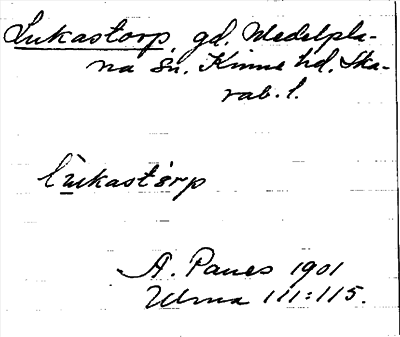 Lukastorp, gd. Medelpla-
na sn. Kinne hd. Ska-
rab. l.
lùkastòrp
A. Paues 1901
Utma 111:115.